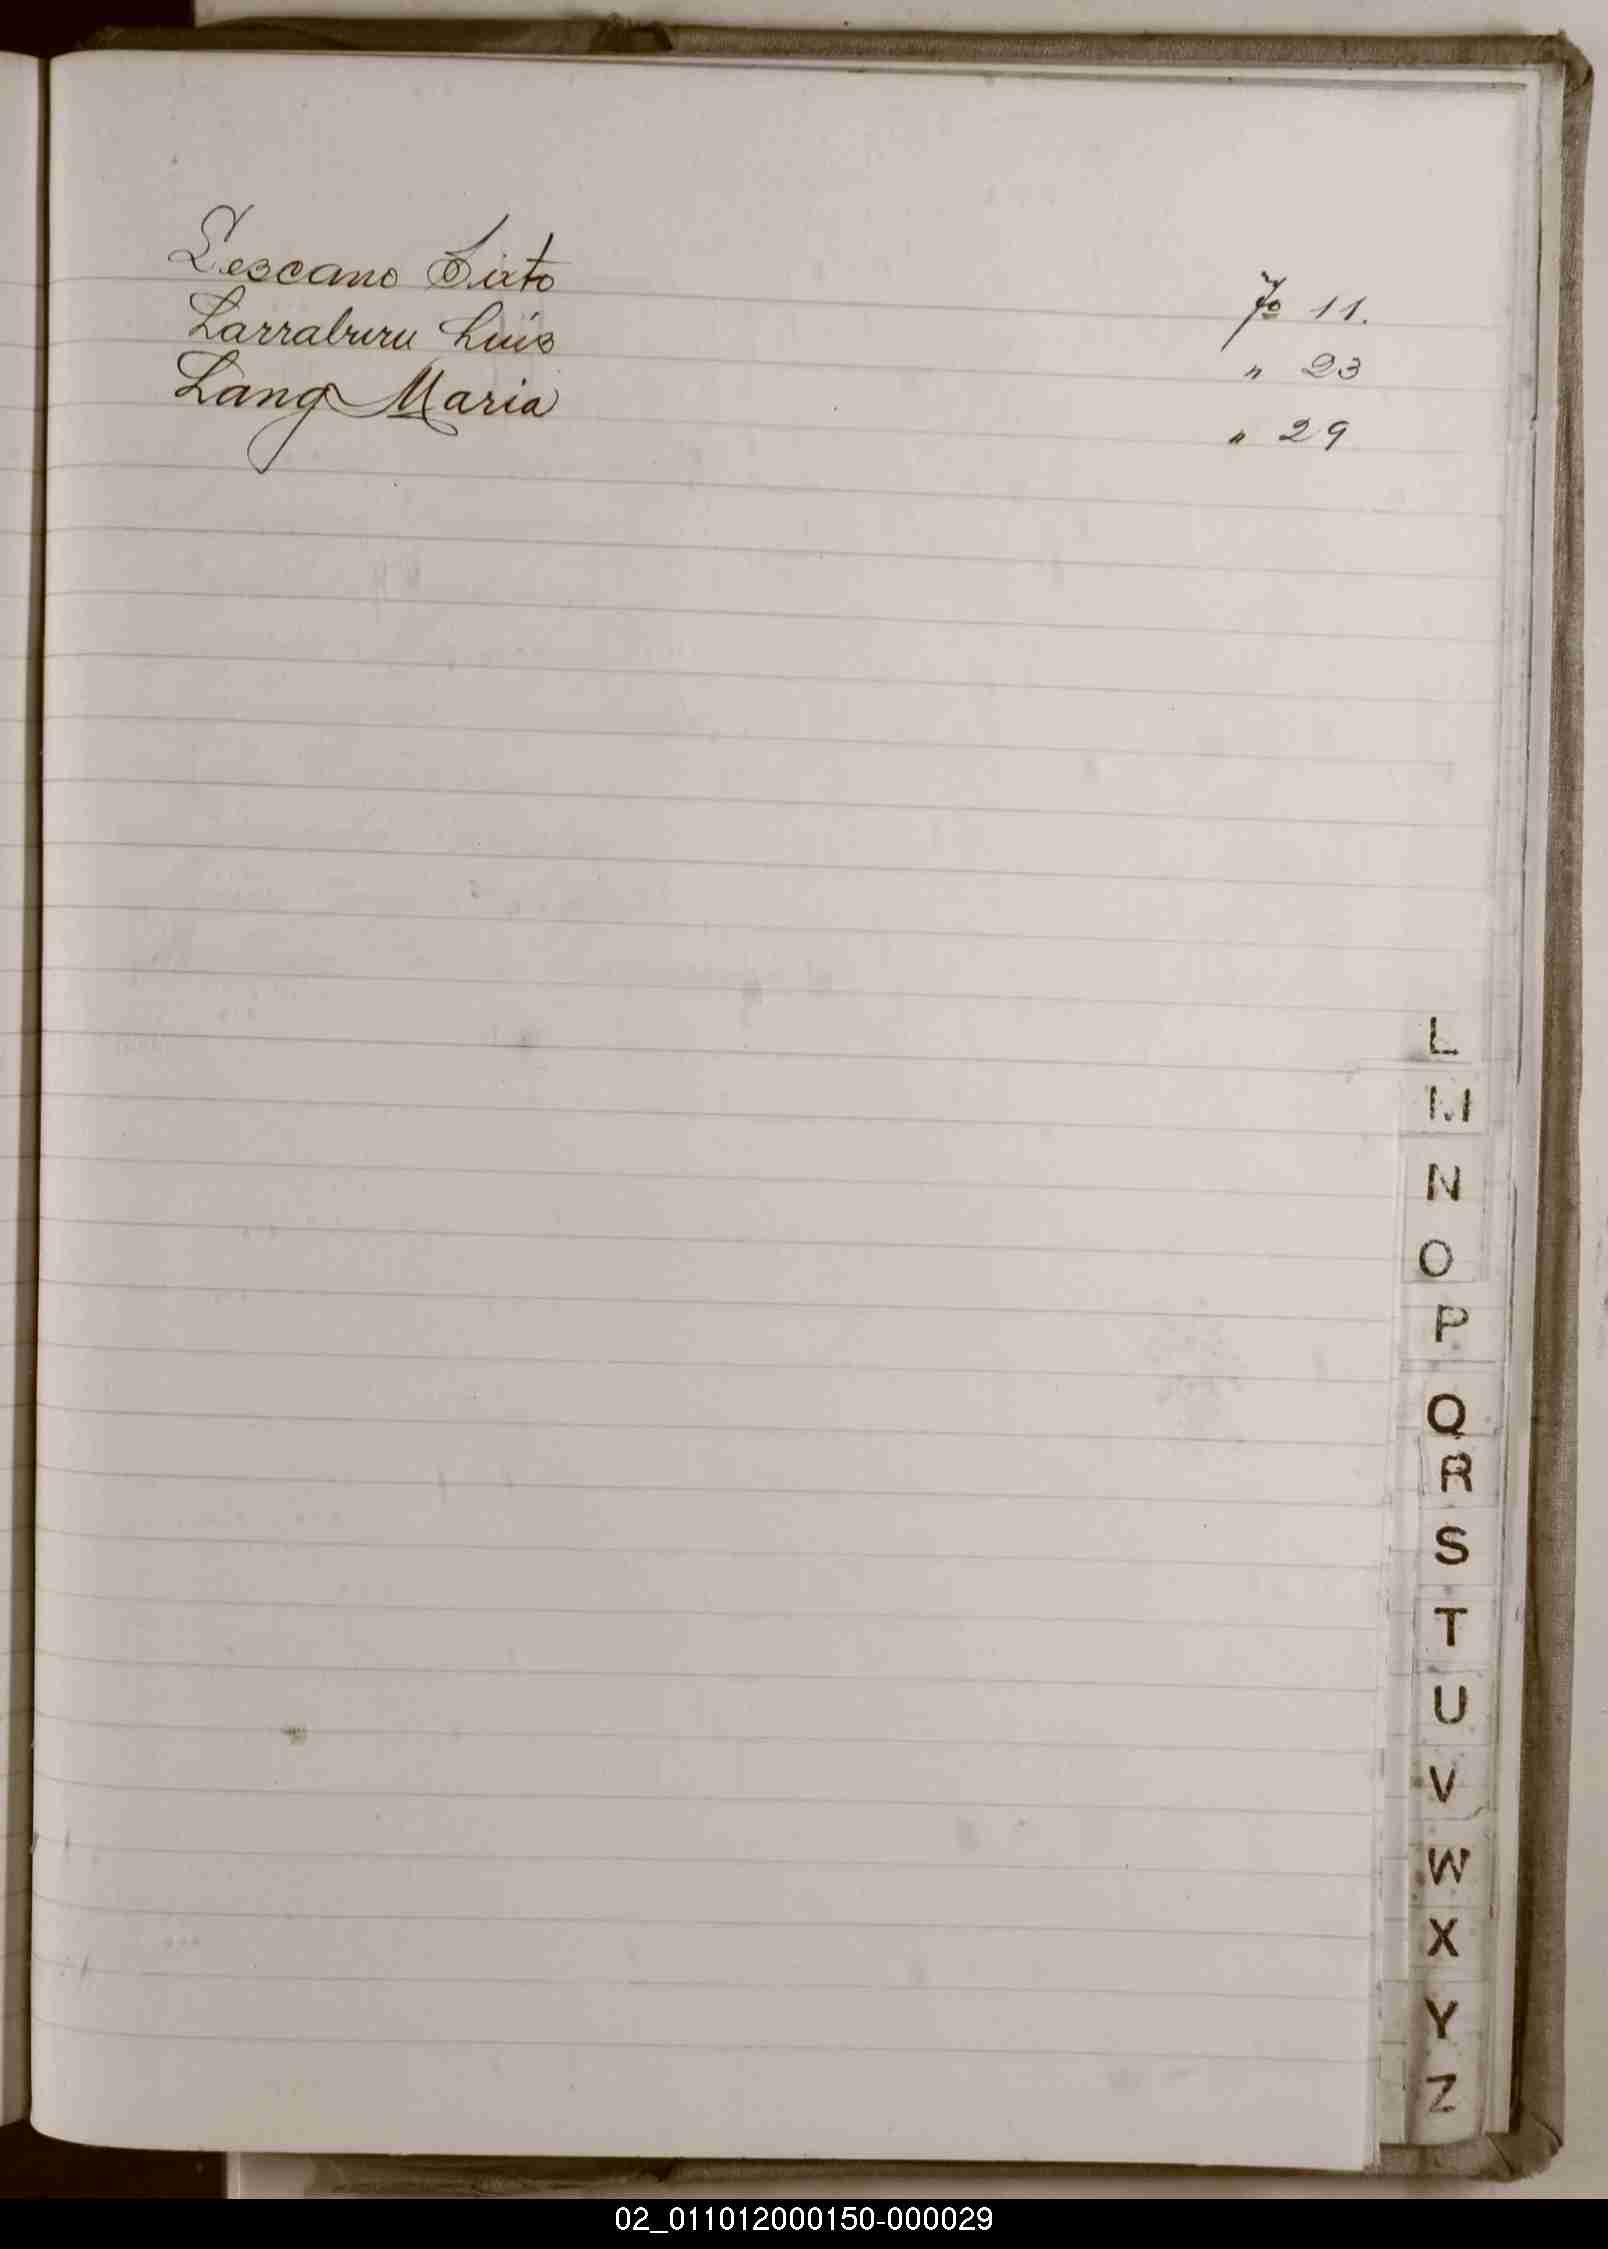 Lescano Sixto Fo 11.
Larraburu Luis " 23
Lang Maria " 29
L
M
N
O
P
Q
R
S
T
U
V
W
X
Y
Z
02_011012000150-000029